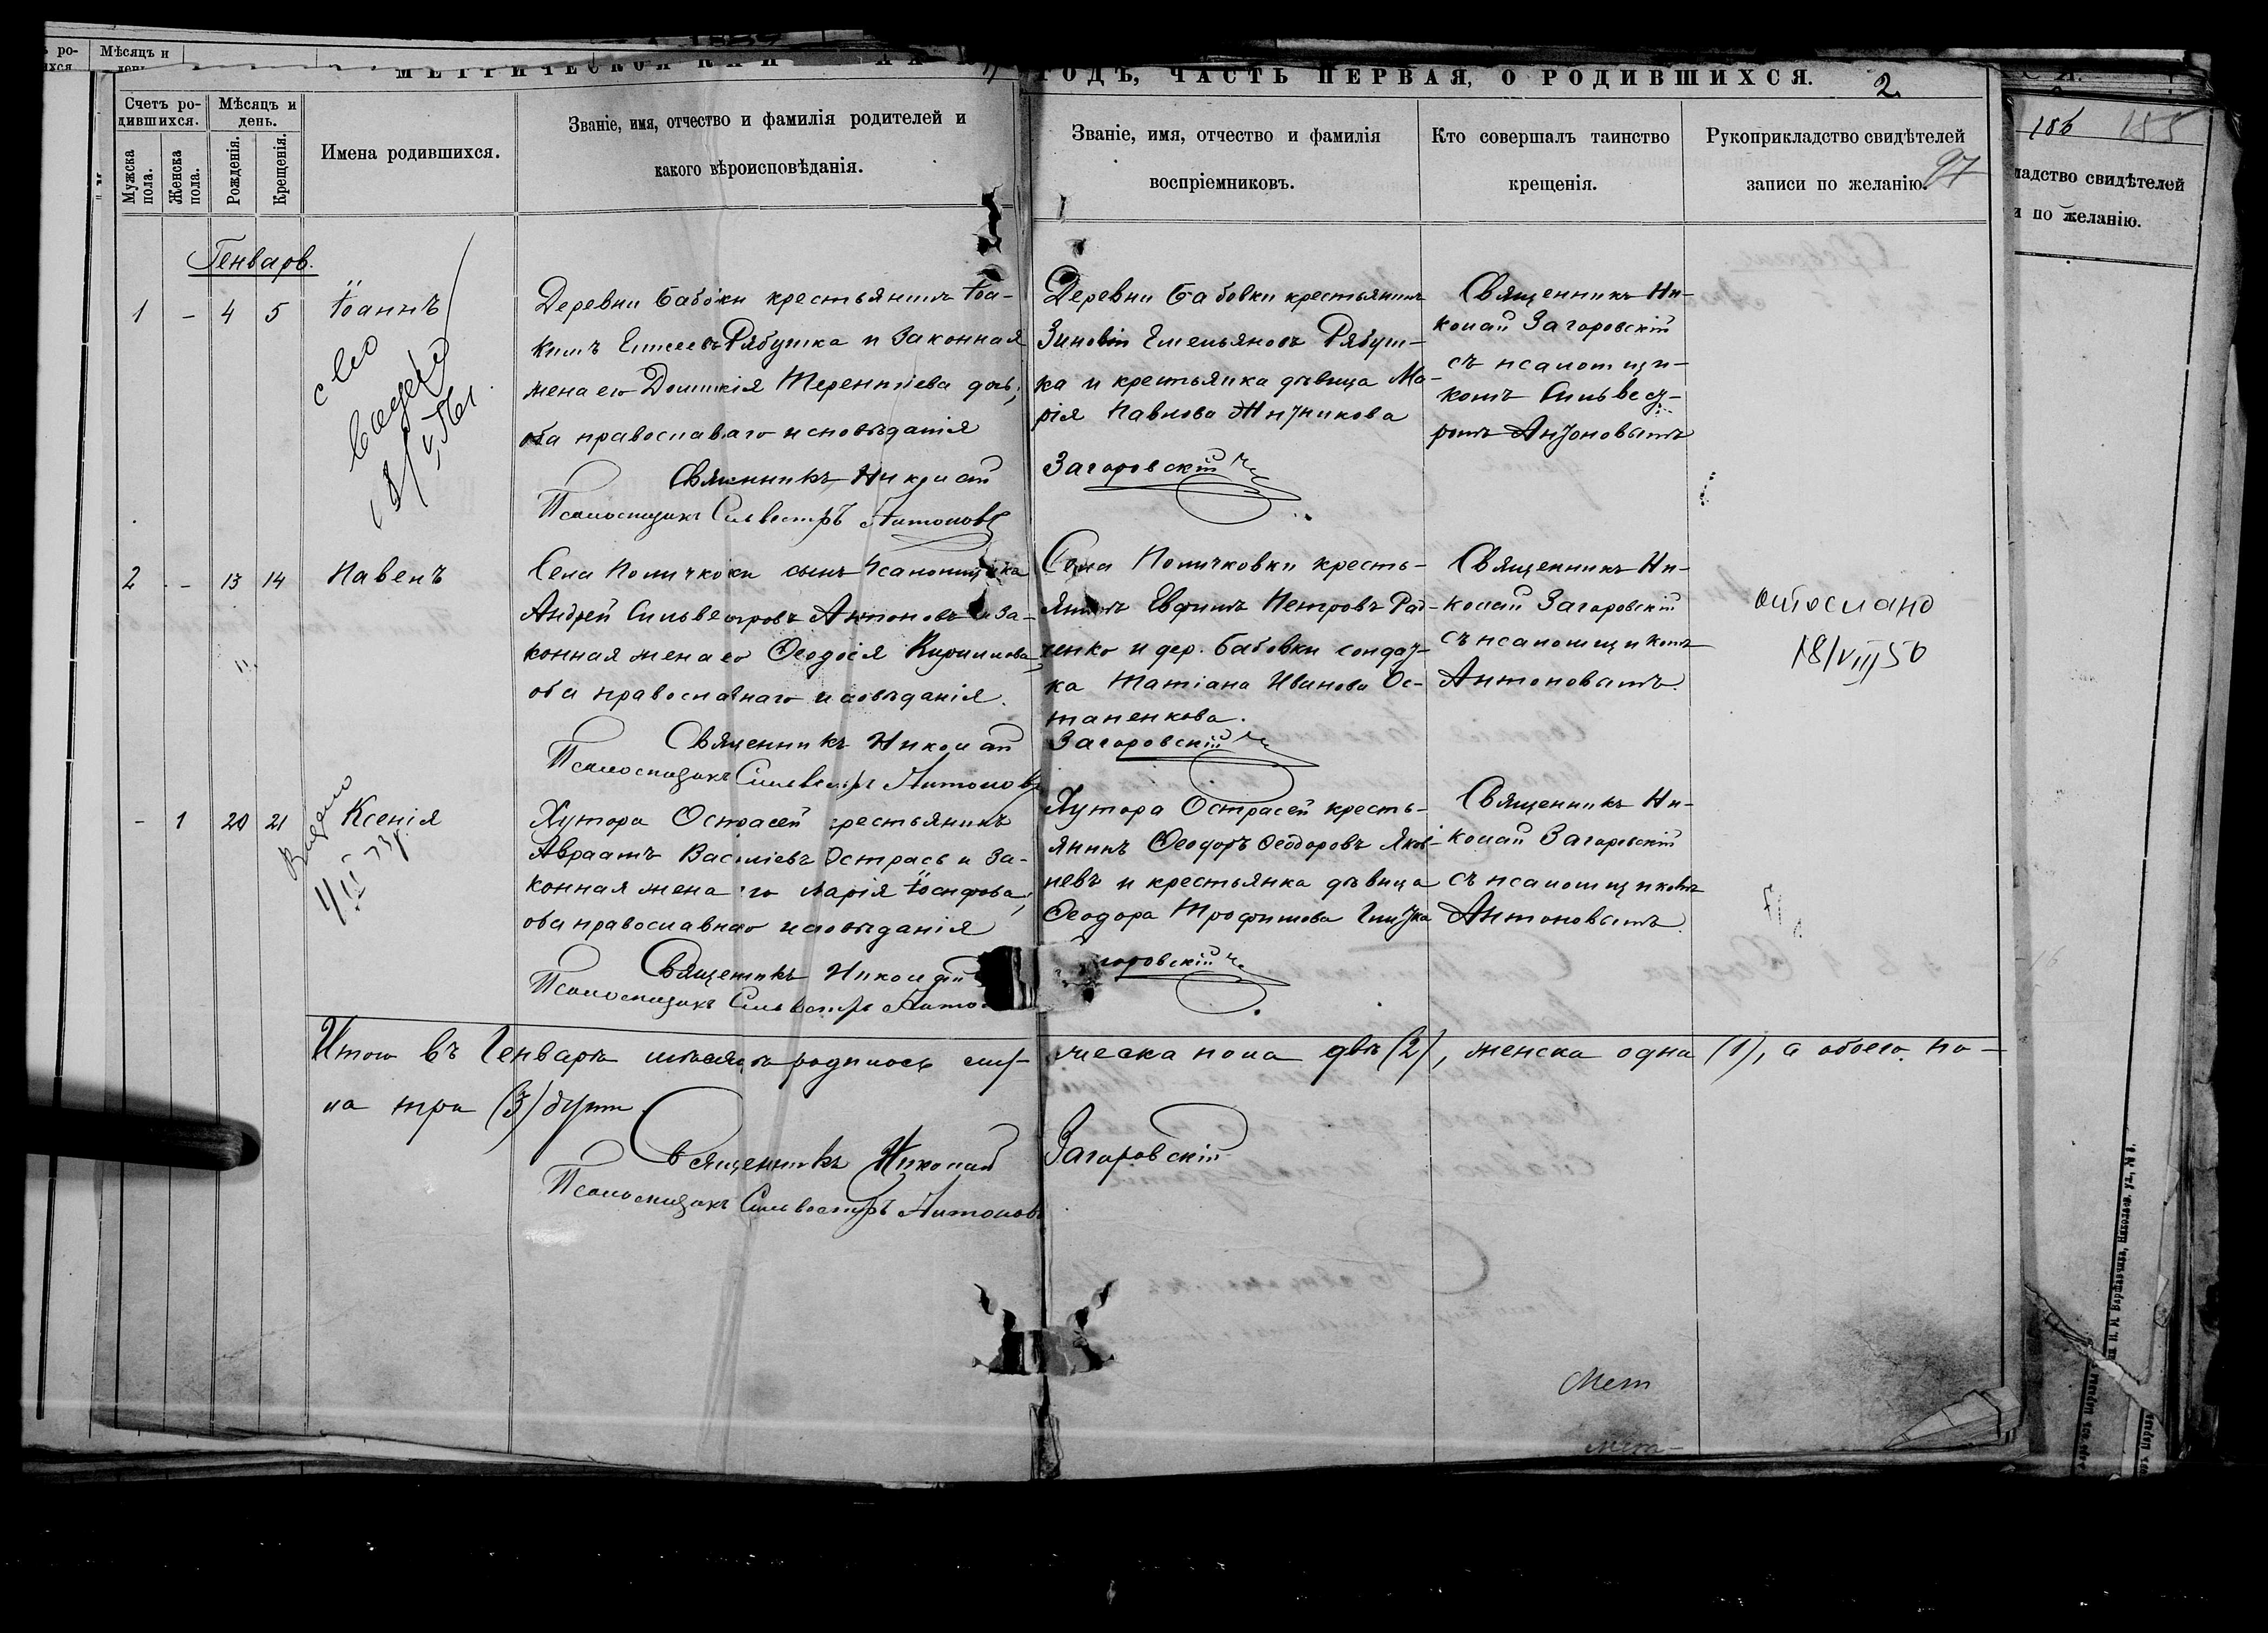 МЕТРИЧЕСКОЙ
ГОДЪ, ЧАСТЬ ПЕРВАЯ, О РОДИВШИХСЯ.
2.
Счетъ ро-
дившихся.
Мѣсяцъ и
день.
Мужска
пола.
Женска
пола.
Рожденія.
Крещенія.
Имена родившихся.
Званіе, имя, отчество и фамилія родителей и
какого вѣроисповѣданія.
Званіе, имя, отчество и фамилія
воспріемниковъ.
Кто совершалъ таинство
крещенія.
Рукоприкладство свидѣтелей
записи по желанію.
97
Генварь.
1 - 4 5 Іоаннъ
Деревни Бабовки крестьянинъ Іоа-
кимъ Елисеевъ Рябушка и законная
жена его Домникія Терентіева дочь,
оба православнаго исповѣданія
Священникъ Николай
Псаломщикъ Сильвестръ Антоновъ
Деревни Бабовки крестьянинъ
Зиновій Емельяновъ Рябуш-
ка и крестьянка дѣвица Ма-
рія Павлова Житникова
Загоровскій
Священникъ Ни-
колай Загоровскій
съ псаломщи-
комъ Сильвест-
ромъ Антоновымъ
2 - 13 14 Павелъ
Села Поличковки сынъ Псаломщика
Андрей Сильвестровъ Антоновъ и за-
конная жена его Ѳеодосія Кириллова,
оба православнаго исповѣданія.
Священникъ Николай
Псаломщикъ Сильвестръ Антоновъ
Села Поличковки кресть-
янинъ Евфимъ Петровъ Рад-
ченко и дер. Бабовки солдат-
ка Татіана Иванова Ос-
тапенкова.
Загоровскій
Священникъ Ни-
колай Загоровскій
съ псаломщикомъ
Антоновымъ.
отослано
18/VIII 50
- 1 20 21 Ксенія
Хутора Острасей крестьянинъ
Авраамъ Василіевъ Острась и за-
конная жена его Марія Іосифова,
оба православнаго исповѣданія
Священникъ Николай
Псаломщикъ Сильвестръ Анто
Хутора Острасей кресть-
янинъ Ѳеодоръ Ѳеодоровъ Яков-
левъ и крестьянка дѣвица
Ѳеодора Трофимова
горовскій
Священникъ Ни-
колай Загоровскій
съ псаломщикомъ
Антоновымъ.
Итого въ Генварѣ мѣсяцѣ родилось муж-
ческа пола двѣ (2), женска одна (1), а обоего по-
ла три (3) души.
Священникъ Николай Загоровскій
Псаломщикъ Сильвестръ Антоновъ
Мет
186 155
ладство свидѣтелей
и по желанію.